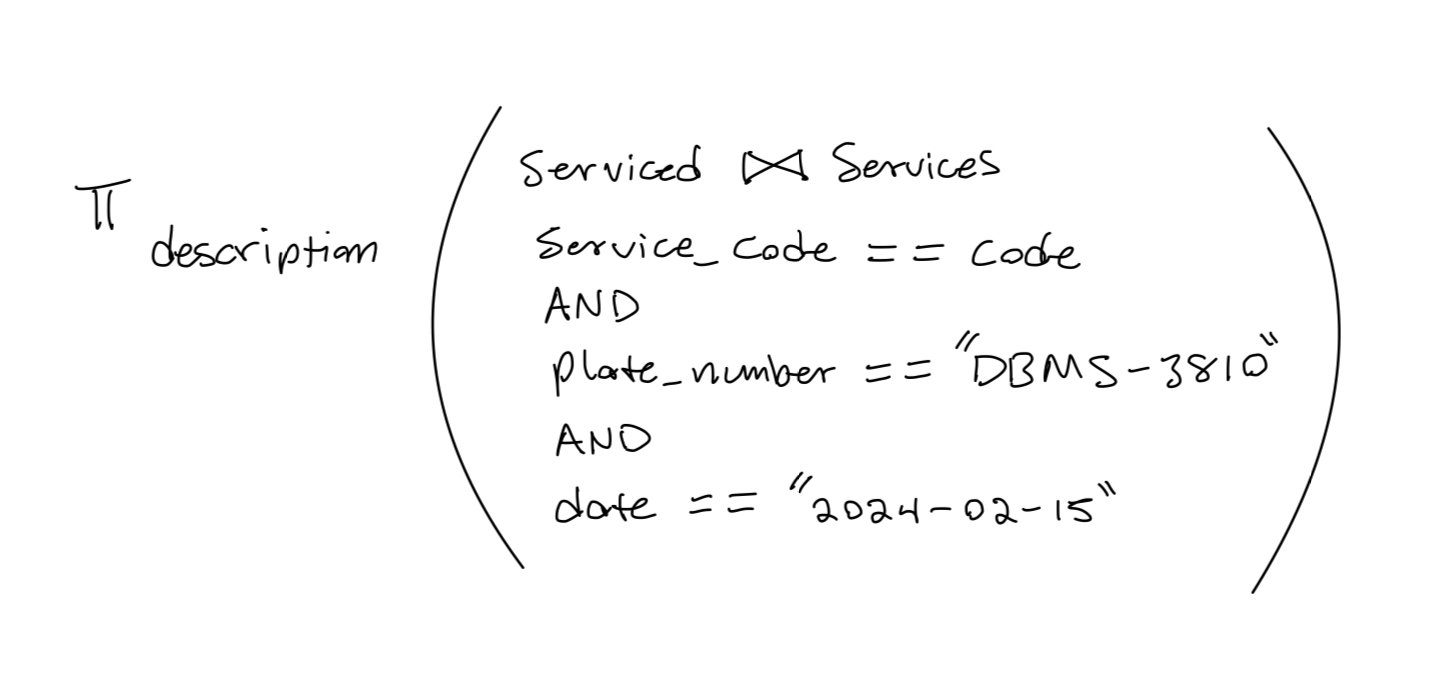 π description
Serviced ⋈ Services
Service_code == code
AND
plate_number == "DBMS-3810"
AND
date == "2024-02-15"